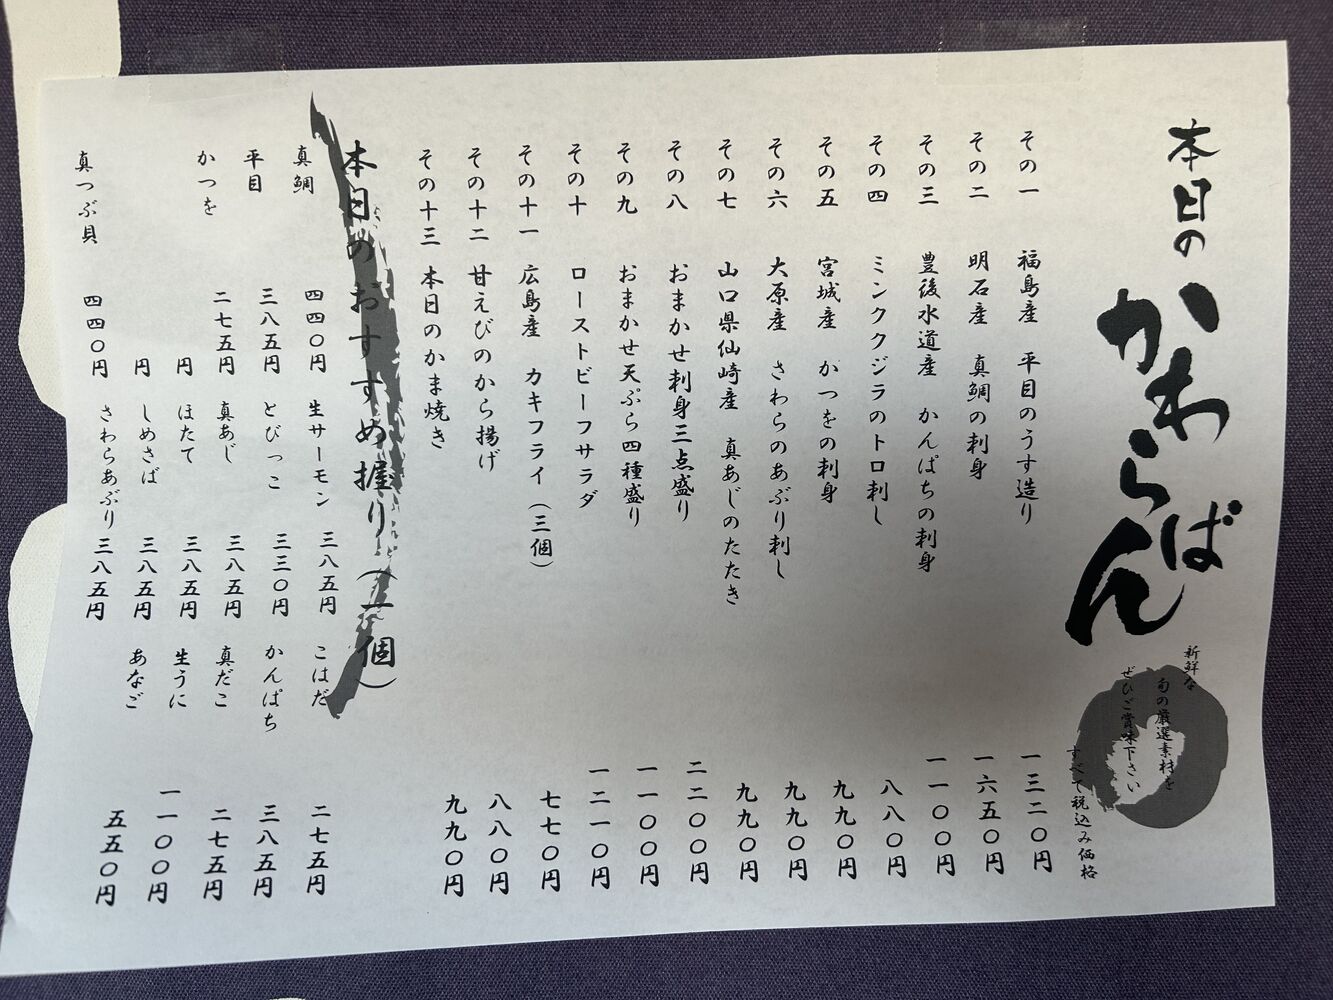 本日の
かわら
ばん
新鮮な
旬の厳選素材を
ぜひご賞味下さい
すべて税込み価格
その一 福島産 平目のうす造り 一三二〇円
その二 明石産 真鯛の刺身 一六五〇円
その三 豊後水道産 かんぱちの刺身 一一〇〇円
その四 ミンククジラのトロ刺し 八八〇円
その五 宮城産 かつをの刺身 九九〇円
その六 大原産 さわらのあぶり刺し 九九〇円
その七 山口県仙崎産 真あじのたたき 九九〇円
その八 おまかせ刺身三点盛り 二二〇〇円
その九 おまかせ天ぷら四種盛り 一一〇〇円
その十 ローストビーフサラダ 一二一〇円
その十一 広島産 カキフライ（三個） 七七〇円
その十二 甘えびのから揚げ 八八〇円
その十三 本日のかま焼き 九九〇円
本日のおすすめ握り（一個）
真鯛 四四〇円 生サーモン 三八五円 こはだ 二七五円
平目 三八五円 とびっこ 三三〇円 かんぱち 三八五円
かつを 二七五円 真あじ 三八五円 真だこ 二七五円
円 ほたて 三八五円 生うに 一一〇〇円
円 しめさば 三八五円 あなご 五五〇円
真つぶ貝 四四〇円 さわらあぶり 三八五円